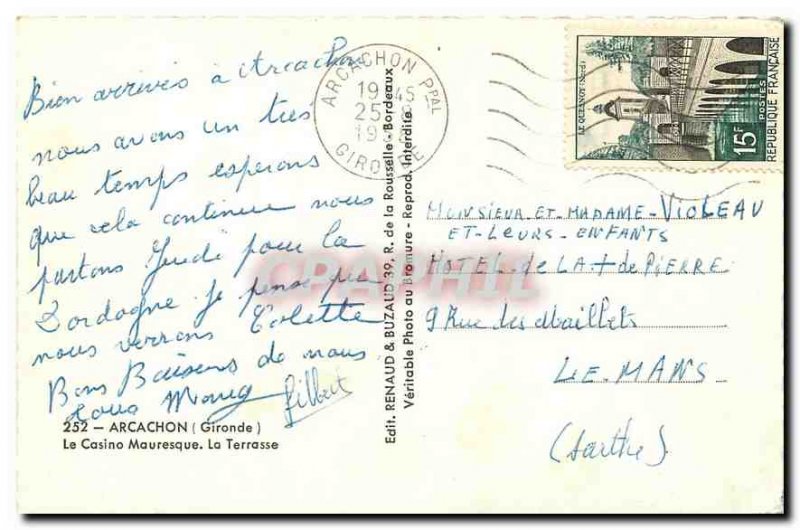 Bien arrivés à Arcachon
nous avons un très
beau temps esperons
que cela continue nous
partons Jeudi pour la
Dordogne je pense que
nous verrons Colette
Bons Baisers de nous
tous
Gilbert
252 — ARCACHON (Gironde)
Le Casino Mauresque. La Terrasse
Edit. RENAUD & BUZAUD 39, R. de la Rousselle - Bordeaux
Véritable Photo au Bromure - Reprod. Interdite
ARCACHON PPAL
19 45
25
19
GIRONDE
LE QUESNOY (Nord)
15F
POSTES
REPUBLIQUE FRANÇAISE
MONSIEUR ET MADAME - VIOLEAU
ET - LEURS - ENFANTS
HOTEL - de LA + de PIERRE
9 Rue des Maillets
LE - MANS
(Sarthe)
CPAPHIL